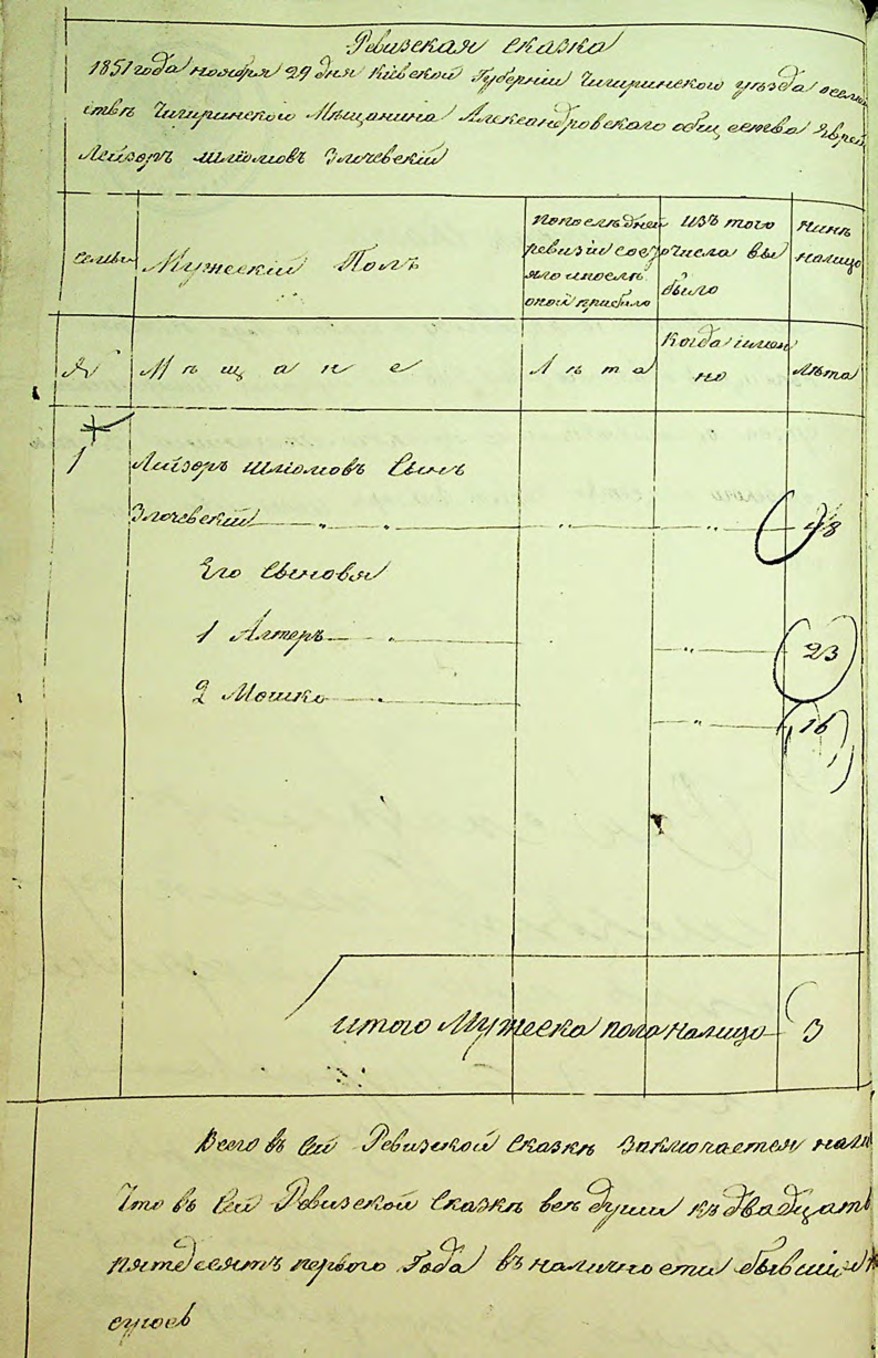 Ревизская сказка
1851 года ноября 29 дня Киевской Губернии Чигиринского уезда
Чигиринской Мѣщанина Александровского общества Яврей
Лейзоръ Шлiомовъ Злочевский
семьи
Мужеский Полъ
попослѣдней ревизiи состояло и послѣ оной прибыло
изъ того числа выбыло
Нинѣ налицо
№
Мѣщане
Лѣта
Когда имянно
лѣта
1
Лейзоръ Шлiомовъ Сынъ
Злочевский 48
Его Сыновья
1 Алтеръ 23
2 Мошко 16
итого Мужеска пола налицо 3
Всего въ Сей Ревизской Сказкѣ Заключается нали
Что въ Сей Ревизской Сказкѣ всѣ души къ двадцать
пятдесятъ первого Года въ наличности бывшие